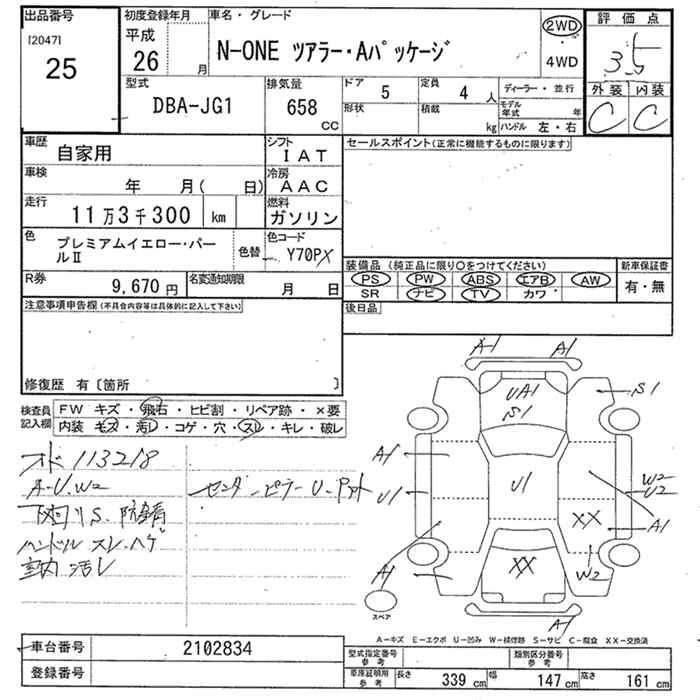 出品番号
[2047]
25
初度登録年月
平成
26 月
車名・グレード
N-ONE ツアラー・Aパッケージ
2WD
・
4WD
評価点
3.5
外装 内装
C C
型式
DBA-JG1
排気量
658
CC
ドア
5
定員
4 人
形状
積載
kg
ディーラー・並行
モデル年式 年
ハンドル 左・右
車歴
自家用
シフト
IAT
車検
年 月( 日)
冷房
AAC
走行
11万3千300 km
燃料
ガソリン
色
プレミアムイエロー・パールⅡ
色替
色コード
Y70PX
R券
9,670円
名変通知期限
月 日
セールスポイント(正常に機能するものに限ります)
装備品 (純正品に限り○をつけてください)
PS PW ABS エアB AW
SR ナビ TV カワ
新車保証書
有・無
後日品
注意事項申告欄(不具合内容等は具体的に記入して下さい)
修復歴 有〔箇所 〕
検査員記入欄
FW キズ・飛石・ヒビ割・リペア跡・×要
内装 キズ・汚レ・コゲ・穴・スレ・キレ・破レ
メーター 113218
A-U.W2
下回りS.防錆
ハンドル スレ.ハゲ
室内汚レ
センターピラー U-Pあと
A1 A1
UA1
S1
S1
A1
U1
U1
W2
U2
XX
A1
XX
W2
A1
A1
スペア
A-キズ E-エクボ U-凹み W-補修跡 S-サビ C-腐食 XX-交換済
車台番号
2102834
登録番号
型式指定番号
参考
類別区分番号
参考
車庫証明用
参考
長さ 339 cm
幅 147 cm
高さ 161 cm